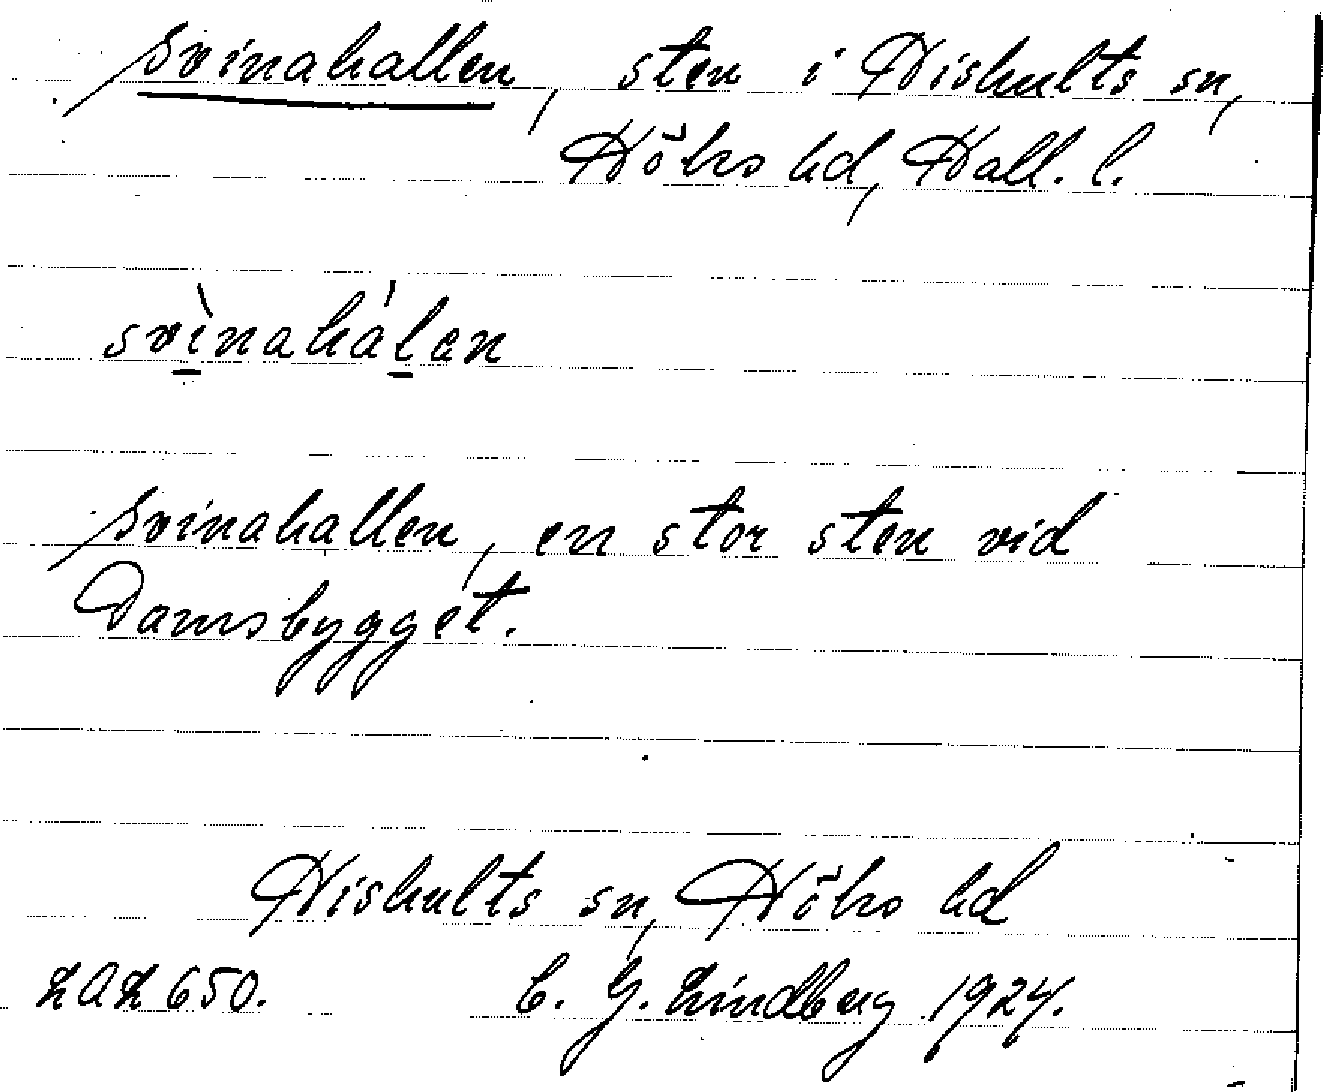 Svinahallen, sten i Hishults sn,
Höks hd, Hall. l.
svìnahálan
Svinahallen, en stor sten vid
Damsbygget.
Hishults sn, Höks hd
LAL 650. C. G. Lindberg 1924.